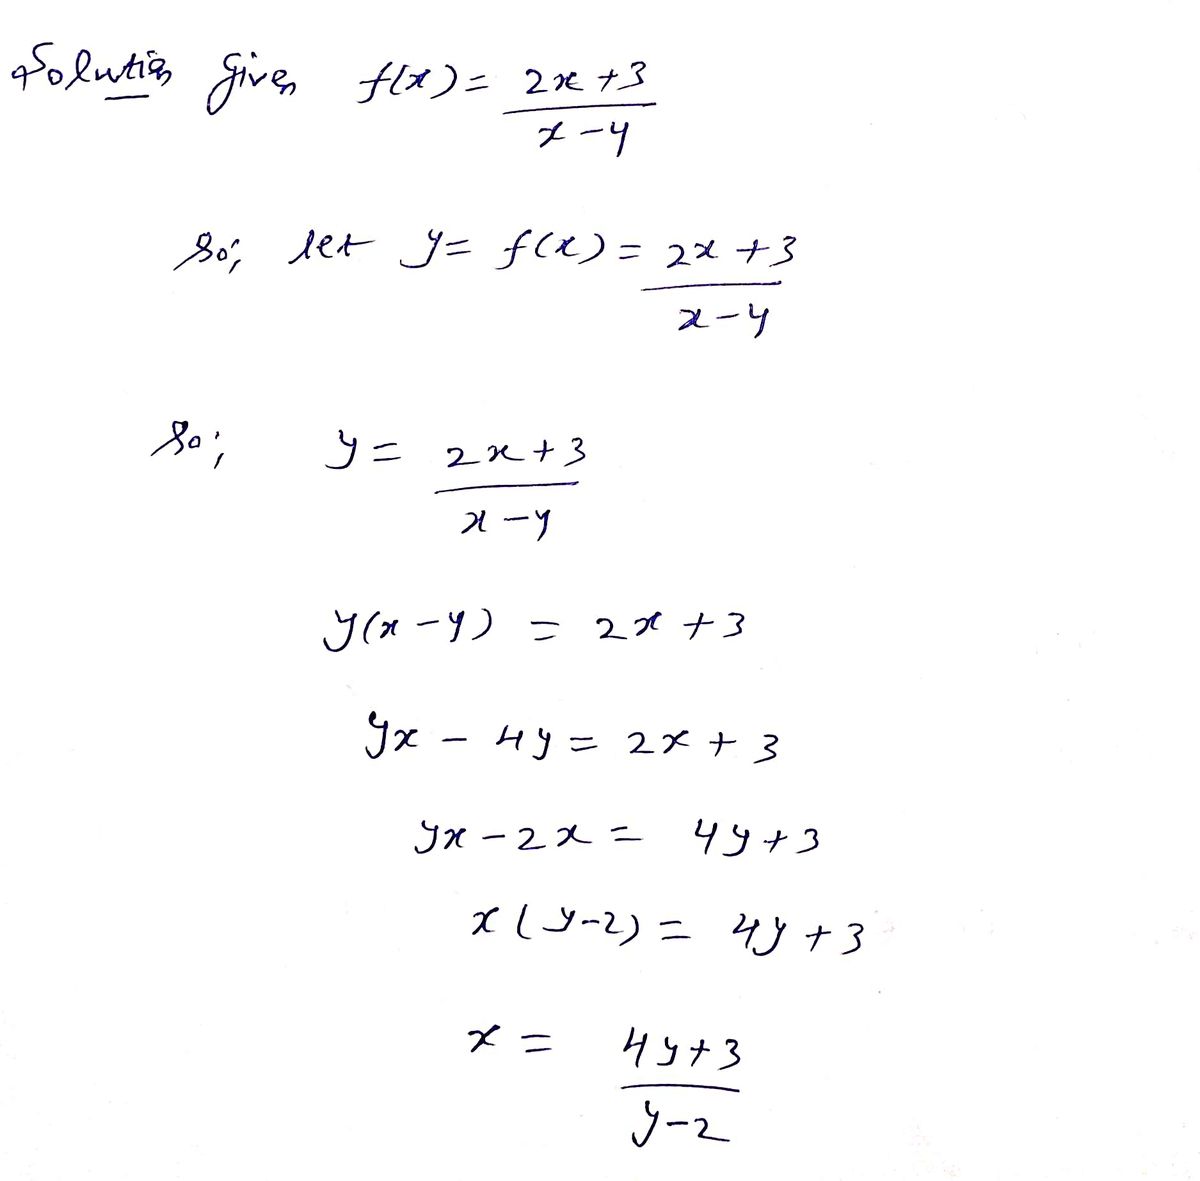 Solution Given f(x) = 2x + 3
x - 4
So; let y = f(x) = 2x + 3
x - 4
So; y = 2x + 3
x - 4
y(x - 4) = 2x + 3
yx - 4y = 2x + 3
yx - 2x = 4y + 3
x(y - 2) = 4y + 3
x = 4y + 3
y - 2